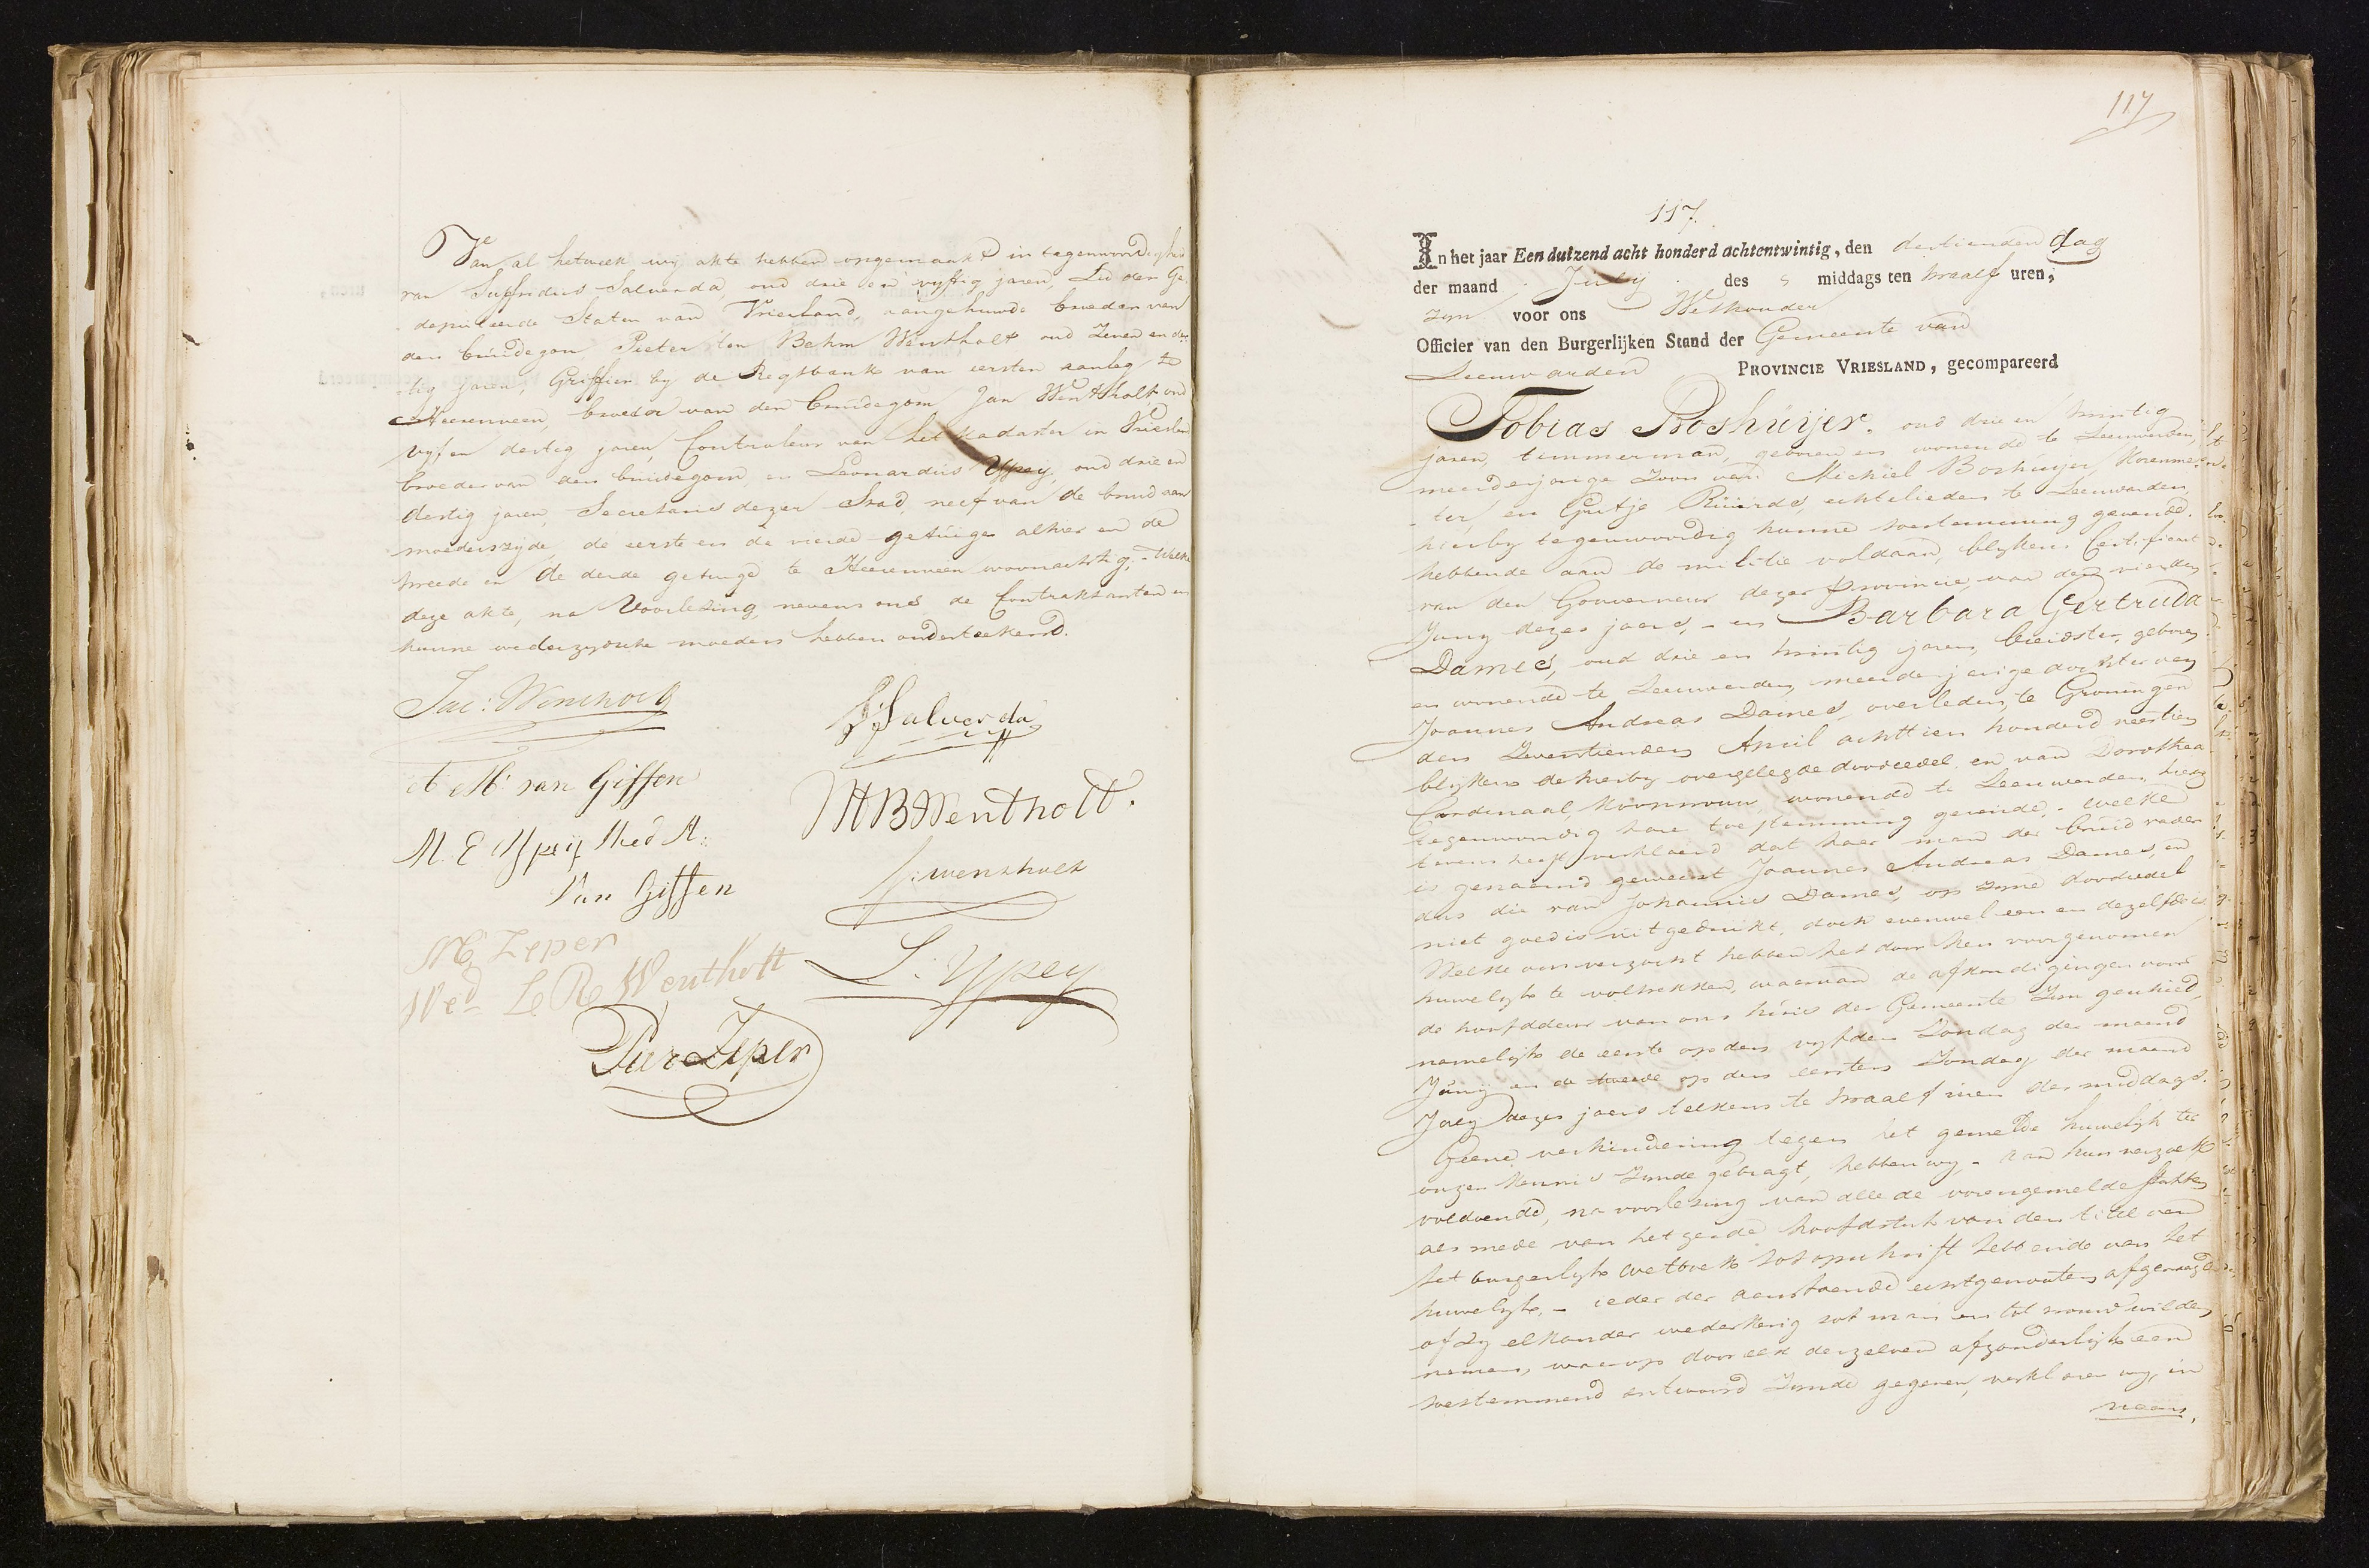 Van al hetwelk wij akte hebben opgemaakt in tegenwoordigheid
van Suffridus Salverda, oud drie en vyftig jaren, Lid der Ge-
deputeerde Staten van Vriesland, aangehuwde broeder van
den bruidegom, Pieter ten Behm Wentholt oud Zeven en der-
tig jaren, Griffier by de Regtbank van eersten aanleg, te
Heerenveen, broeder van den bruidegom Jan Wentholt oud
vyf en dertig jaren, Controleur van het Kadaster in Vriesland
broeder van den bruidegom, en Leonardus Ypey, oud drie en
dertig jaren, Secretaris dezer Stad, neef van de bruid van
moederszyde, de eerste en de vierde getuige alhier en de
tweede en de derde getuige te Heerenveen woonachtig; - Welke
deze akte, na Voorlezing, nevens ons de Contraktanten en
hunne wederzydsche moeders hebben onderteekend.
Jac: Wentholt
SSalverda
A M: van Giffen
Wentholt.
M. E Ypeij Wed A:
Van Giffen
J: wentholt
Zeper
Wed L R Wentholt
L. Ypey
Zeper
117
117.
In het jaar Een duizend acht honderd achtentwintig, den dertienden dag
der maand July des s middags ten twaalf uren,
zyn voor ons Wethouder
Officier van den Burgerlijken Stand der Gemeente van
Leeuwarden PROVINCIE VRIESLAND, gecompareerd
Tobias Boshuijer, oud drie en twintig
jaren, timmerman, geboren en wonende te Leeuwarden,
meerderjarige Zoon van Michiel Boshuyer, Korenme-
ter, en Grietje Ruurds, echtelieden te Leeuwarden,
hierby tegenwoordig hunne toestemming gevende.
hebbende aan de militie voldaan, blykens Certificaat
van den Gouverneur dezer provincie, van den vierden
Juny dezes jaars, - en Barbara Gertruda
Dames, oud drie en twintig jaren, breidster, geboren
en wonende te Leeuwarden, meerderjarige dochter van
Joannes Andreas Dames, overleden te Groningen
den Zeventienden April achttien honderd veertien
blykens de hierby overgelegde doodcedel, en van Dorothea
Cardinaal, Koopvrouw, wonende te Leeuwarden, hierby
tegenwoordig hare toestemming gevende. welke
tevens heeft verklaard dat haar man der bruid vader
is genaamd geweest Joannes Andreas Dames, en
dus die van Johannis Dames, op zyne doodcedel
niet goed is uitgedrukt, doch evenwel een en dezelfde is
Welke ons verzocht hebben het door hen voorgenomen
huwelyk te voltrekken, waarvan de afkondigingen voor
de hoofddeur van ons huis der Gemeente Zyn geschied,
namelyk de eerste op den vyfden Zondag der maand
Juny en de tweede op den eersten Zondag der maand
July dezes jaars telkens te twaalf uren des middags.
Geene verhindering tegen het gemelde huwelyk ter
onzer kennis Zynde gebragt, hebben wy - aan hun verzoek
voldoende, na voorlezing van alle de vorengemelde stukken
als mede van het zesde hoofdstuk van den titel van
het burgerlyk Wetboek tot opschrift hebbende van het
huwelyk, - ieder der aanstaande echtgenooten afgevraagd
of Zy elkander wederkerig tot man en tot vrouw wilden
nemen, waarop door elk derzelven afzonderlyk een
toestemmend antwoord Zynde gegeven, verklaren wy, in
naam,